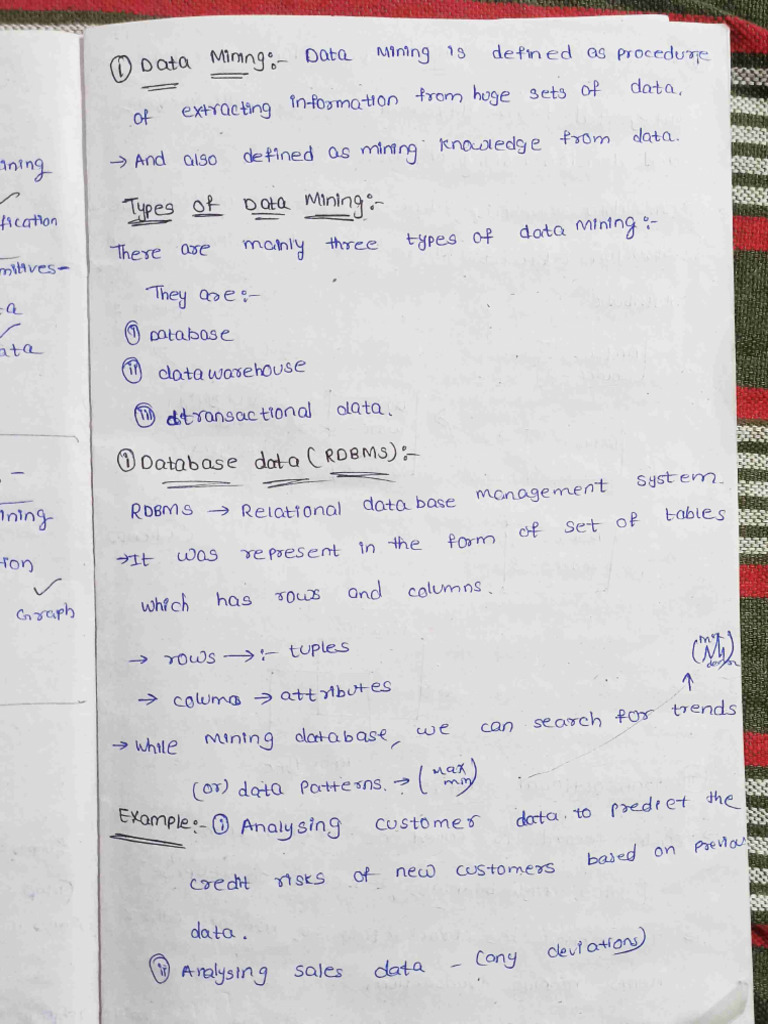 ining
fication
mitives-
ta
ata
ining
tion
Graph
① Data Mining:- Data Mining is defined as procedure
of extracting information from huge sets of data.
→ And also defined as mining knowledge from data.
Types of Data Mining:-
There are mainly three types of data mining:-
They are:-
ⓘ Database
ⓘⓘ datawarehouse
ⓘⓘⓘ transactional data.
① Database data (RDBMS):-
RDBMS → Relational database management system.
→ It was represent in the form of set of tables
which has rows and columns.
→ rows →:- tuples
→ columns → attributes
→ While mining database, we can search for trends
(or) data patterns. → (Max min)
Example:- ① Analysing customer data to predict the
credit risks of new customers based on previou
data.
ⓘⓘ Analysing sales data - (any deviations)